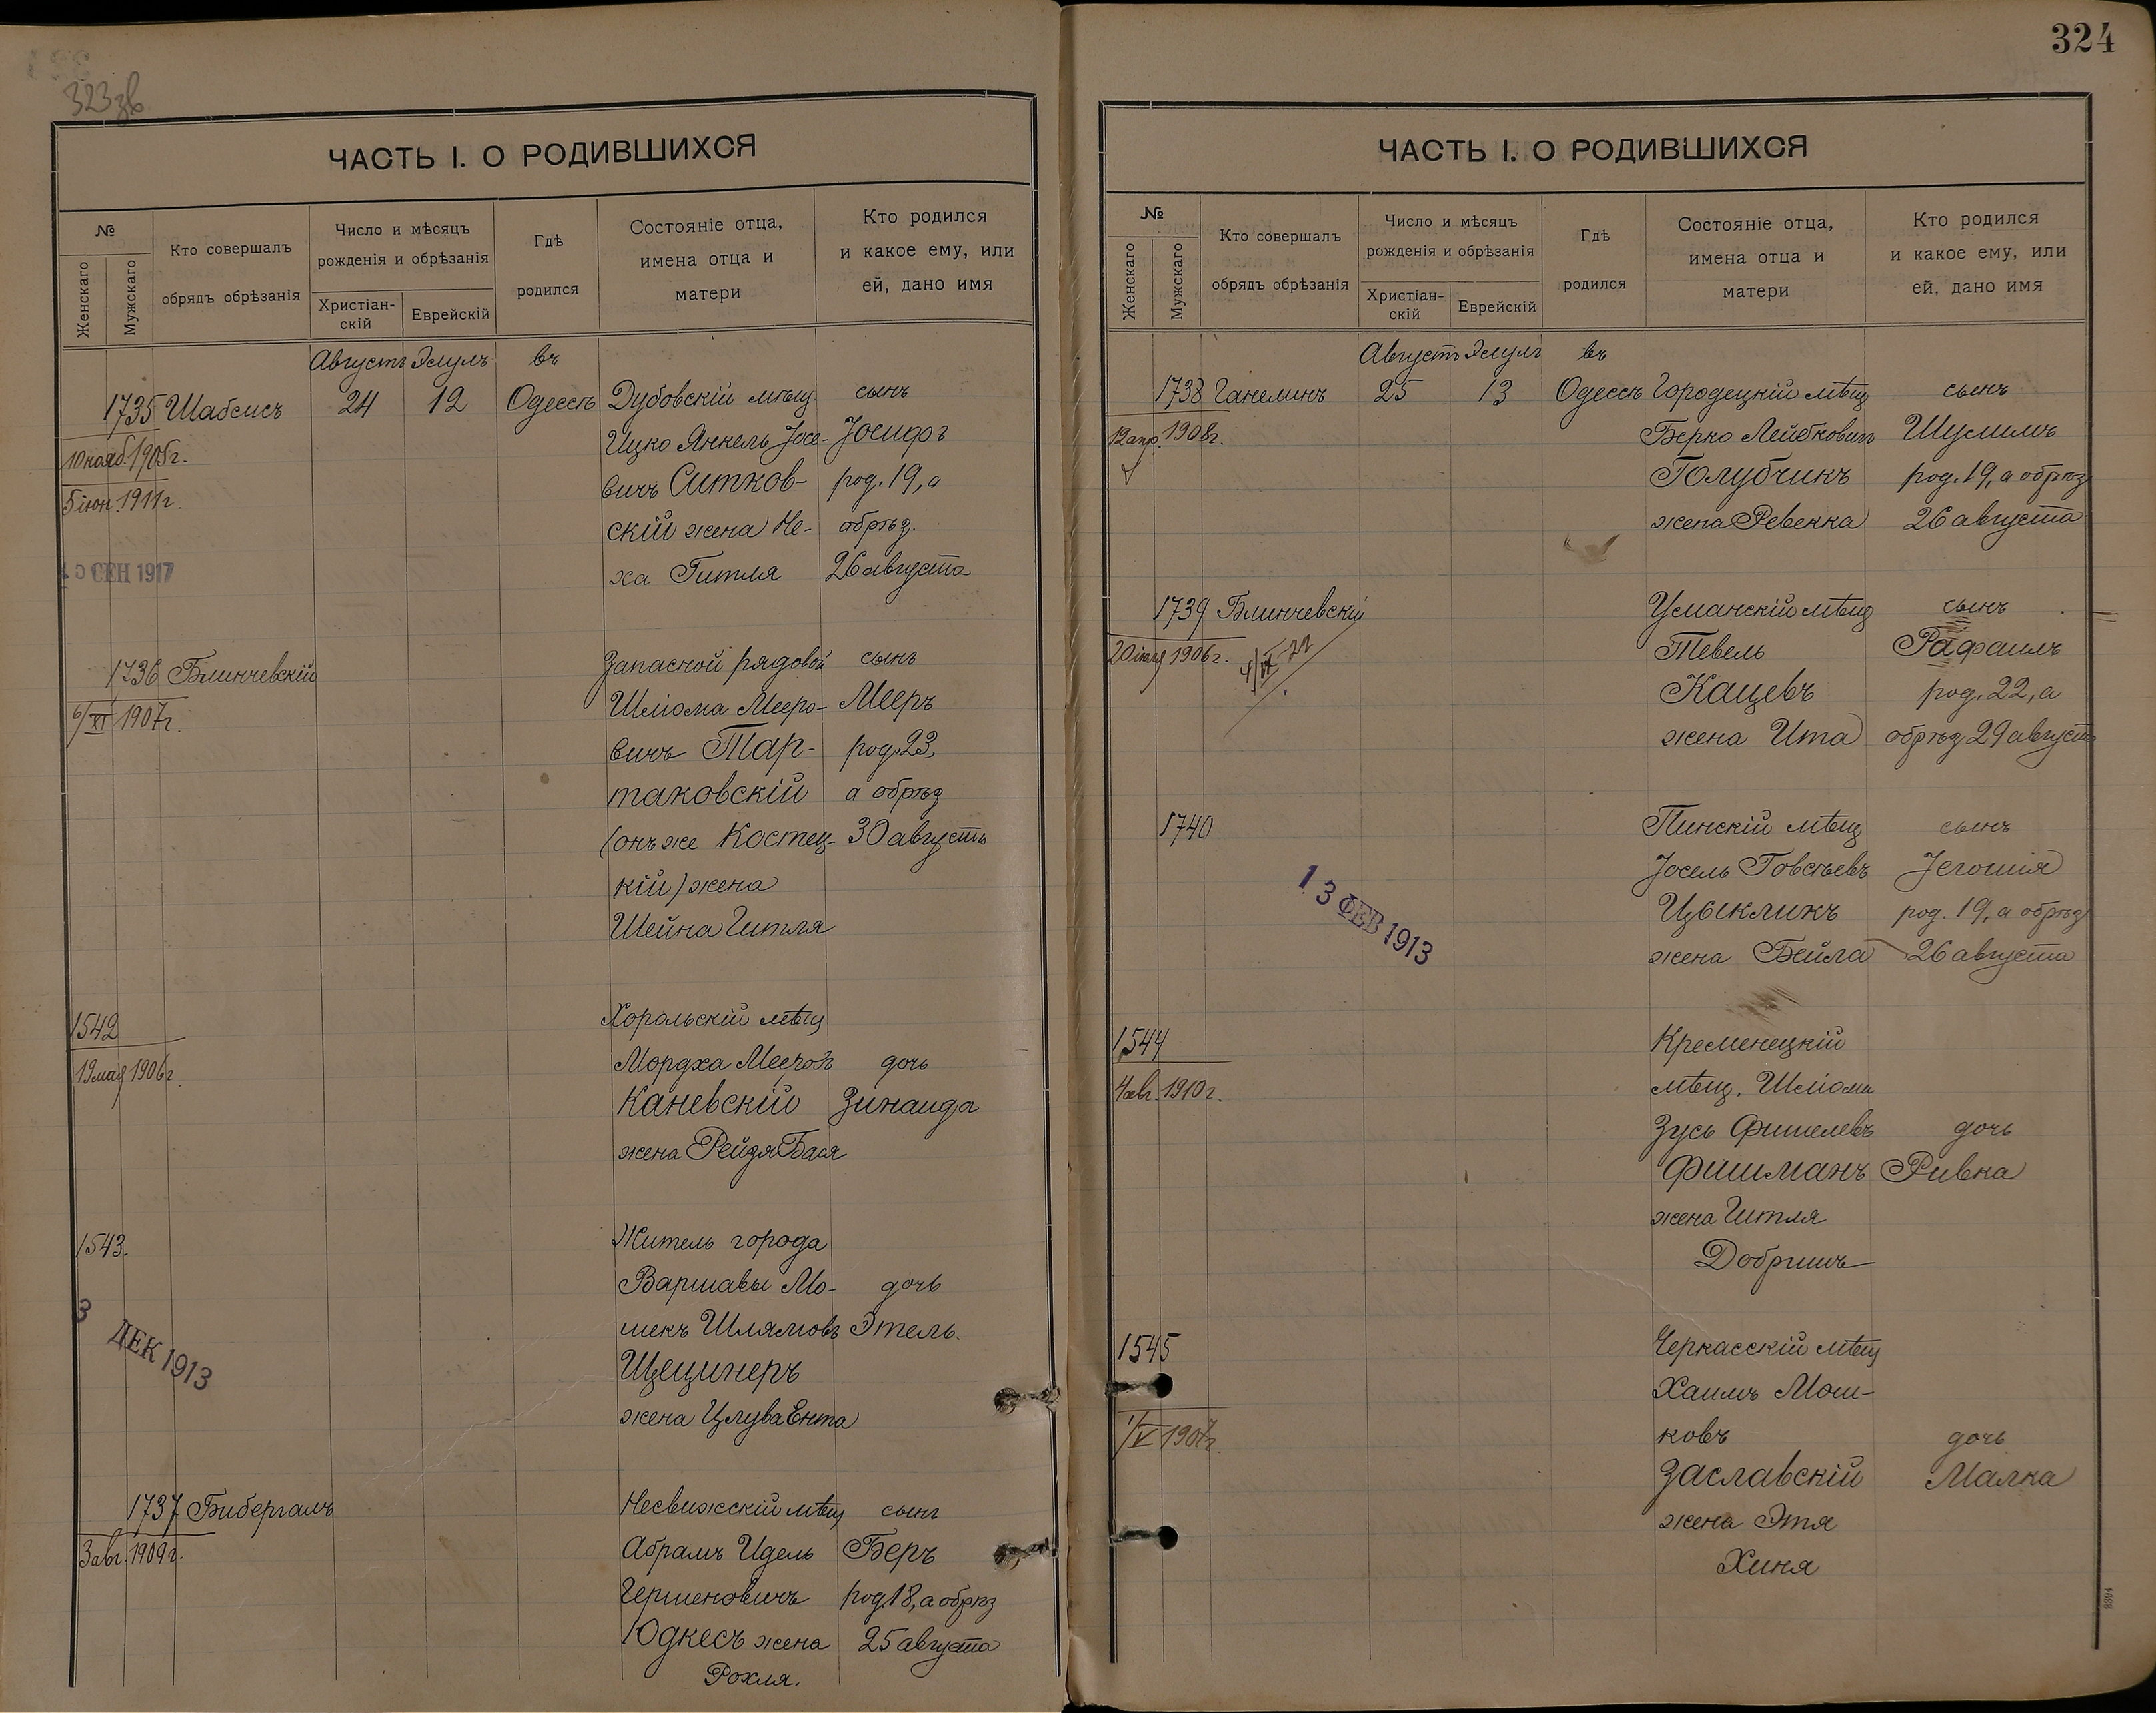 323зв
ЧАСТЬ I. О РОДИВШИХСЯ
№
Женскаго
Мужскаго
Кто совершалъ
обрядъ обрѣзанія
Число и мѣсяцъ
рожденія и обрѣзанія
Христіан-
скій
Еврейскій
Гдѣ
родился
Состояніе отца,
имена отца и
матери
Кто родился
и какое ему, или
ей, дано имя
Августъ Элулъ въ
1735 Шабсисъ 24 12 Одессѣ Дубовскій мѣщ. сынъ
Ицко Янкель Іосе- Іосифъ
10 нояб. 1905г.
вичъ Ситков- род. 19, а
5 іюн. 1911г.
скій жена Не- обрѣз.
СЕН 1917
ха Гитля 26 августа
1736 Блинчевскій Запасной рядовой сынъ
6/XI 1907г. Шліома Мееро- Мееръ
вичъ Тар- род. 23,
таковскій а обрѣз
(онъ же Костец- 30 августа
кій) жена
Шейна Гитля
1542 Хорольскій мѣщ
19 мая 1906г. Мордха Мееровъ дочь
Каневскій Зинаида
жена Рейзя Бася
1543. Житель города
Варшавы Мо- дочь
3 ДЕК 1913
шекъ Шлямовъ Этель.
Щецинеръ
жена Цлува Ента
1737 Бибергалъ Несвижскій мѣщ сынъ
3 авг. 1909г. Абрамъ Идель Беръ
Гершеновичъ род. 18, а обрѣз
Юдкесъ жена 25 августа
Рохля.
324
ЧАСТЬ I. О РОДИВШИХСЯ
№
Женскаго
Мужскаго
Кто совершалъ
обрядъ обрѣзанія
Число и мѣсяцъ
рожденія и обрѣзанія
Христіан-
скій
Еврейскій
Гдѣ
родился
Состояніе отца,
имена отца и
матери
Кто родился
и какое ему, или
ей, дано имя
Августъ Элулъ въ
1738 Ганелинъ 25 13 Одессѣ Городецкій мѣщ сынъ
12 апр. 1908г. Берко Лейбковичъ Шулимъ
Голубчикъ род. 19, а обрѣз
жена Ревекка 26 августа
1739 Блинчевскій Уманскій мѣщ сынъ
20 іюля 1906г. Тевель Рафаилъ
Кацевъ род. 22, а
жена Ита обрѣз 29 августа
1740 Пинскій мѣщ сынъ
Іосель Говсѣевъ Іегошія
13 ФЕВ 1913
Цыкликъ род. 19, а обрѣз
жена Бейла 26 августа
1544 Кременецкій
4 авг. 1910г. мѣщ. Шліома
Зусь Фишелевъ дочь
Фишманъ Ривка
жена Гитля
Добришъ
1545 Черкасскій мѣщ
Хаимъ Мош-
1/V 1907г. ковъ дочь
Заславскій Малка
жена Этя
Хиня